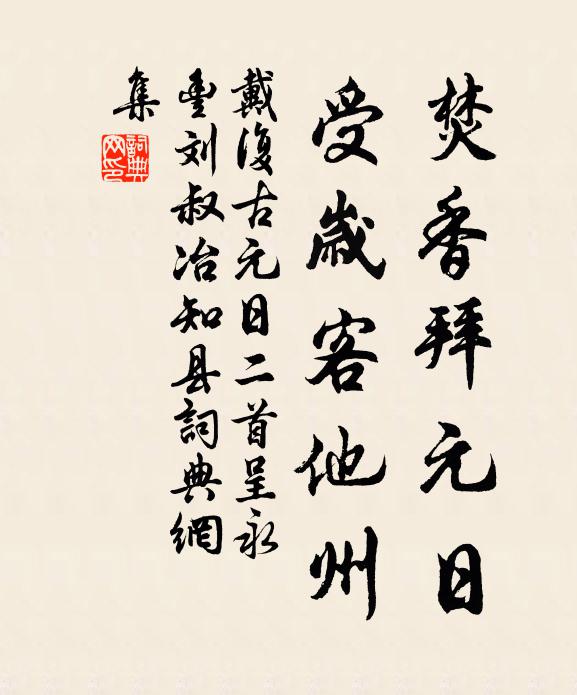 焚香拜元日
受歲客他州
戴復古元日二首呈永
豊刘叔冶知县詞典網
集
詞典
网印